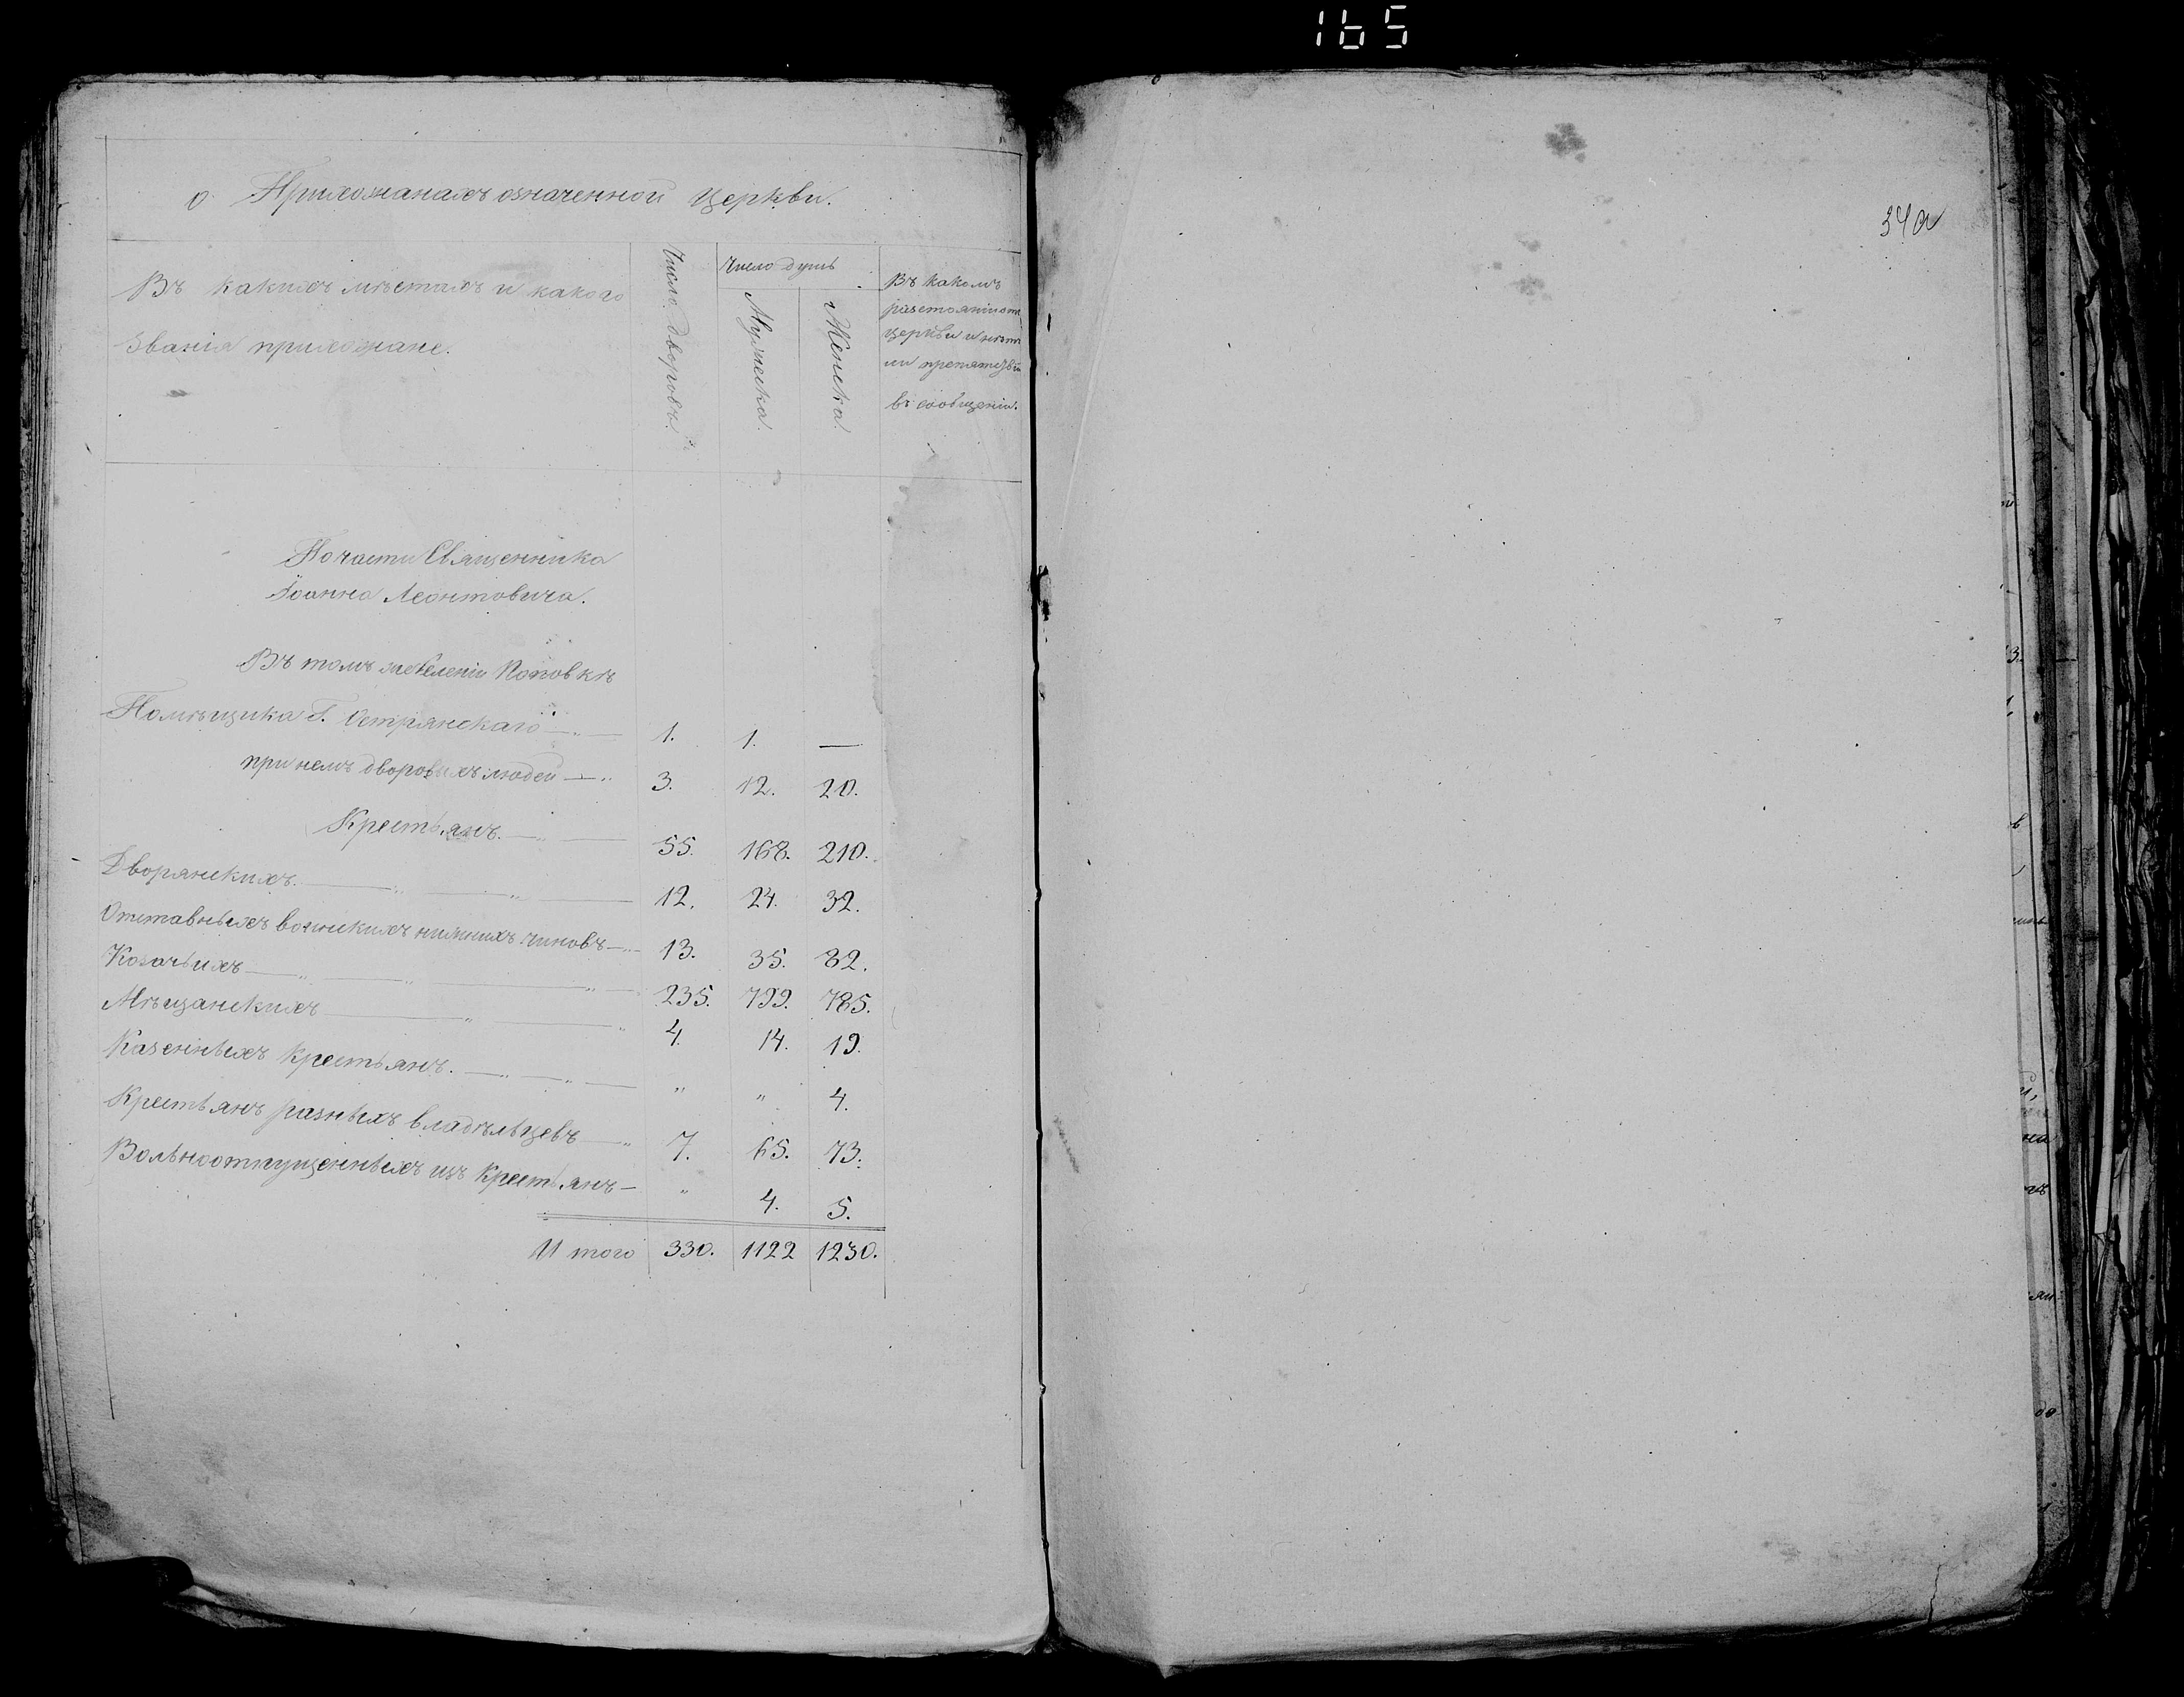 165
о Прихожанахъ означенной Церкви.
Въ какихъ мѣстахъ и какого
званія прихожане.
Число дворовъ.
Число душъ
Мужеска.
Женска.
Въ какомъ
разстояніи отъ
Церкви и нѣтъ
ли препятствій
въ сообщеніи.
По части Священника
Іоанна Леонтовича.
Въ томъ же селеніи Поповкѣ
Помѣщика Г. Острянскаго 1. 1. —
при немъ дворовыхъ людей 3. 12. 20.
Крестьянъ. 55. 168. 210.
Дворянскихъ. 12. 24. 32.
Отставныхъ воинскихъ нижнихъ чиновъ 13. 35. 82.
Козачьихъ 235. 799. 785.
Мѣщанскихъ 4. 14. 19.
Казенныхъ крестьянъ. " " 4.
Крестьянъ разныхъ владѣльцевъ 7. 65. 73.
Вольноотпущенныхъ изъ крестьянъ " 4. 5.
И того 330. 1122 1230.
34а